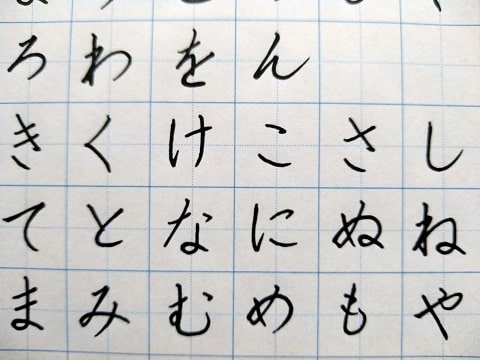 ろわをん
きくけこさし
てとなにぬね
まみむめもや